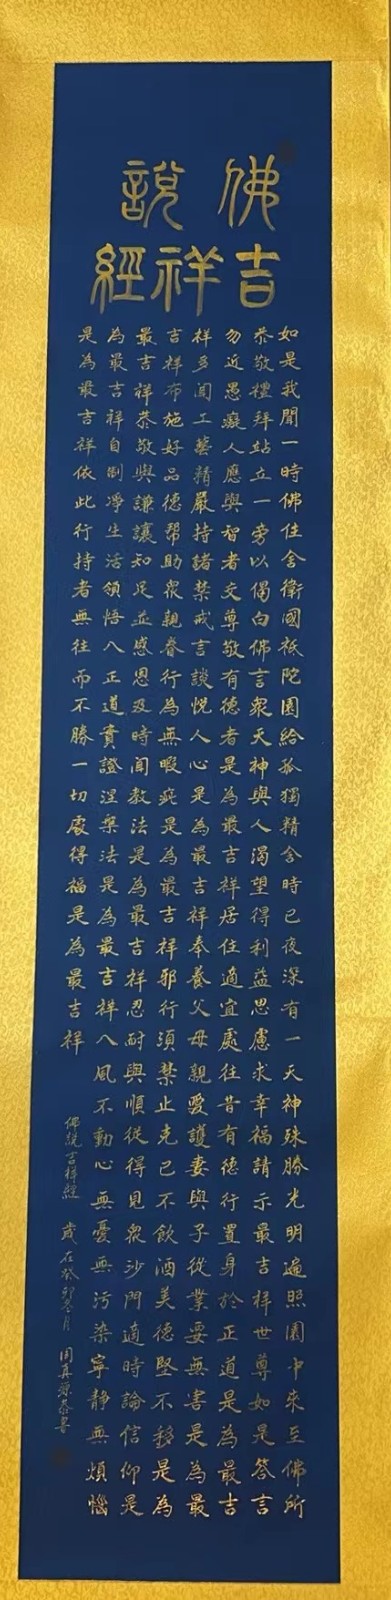 佛說
吉祥經
如是我聞一時佛住舍衛國祇陀園給孤獨精舍時已夜深有一天神殊勝光明遍照園中來至佛所
恭敬禮拜站立一旁以偈白佛言眾天神與人渴望得利益思慮求幸福請示最吉祥世尊如是答言
勿近愚癡人應與智者交尊敬有德者是為最吉祥居住適宜處往昔有德行置身於正道是為最吉
祥多聞工藝精嚴持諸禁戒言談悅人心是為最吉祥奉養父母親愛護妻與子從業要無害是為最
吉祥布施好品德幫助眾親眷行為無瑕疵是為最吉祥邪行須禁止克己不飲酒美德堅不移是為
最吉祥恭敬與謙讓知足並感恩及時聞教法是為最吉祥忍耐與順從得見眾沙門適時論信仰是
為最吉祥自制淨生活領悟八正道實證涅槃法是為最吉祥八風不動心無憂無污染寧静無煩惱
是為最吉祥依此行持者無往而不勝一切處得福是為最吉祥
佛說吉祥經 歲在癸卯冬月 周真 恭書